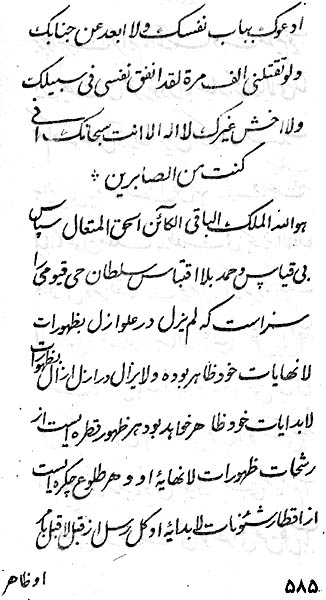 ادعوک بباب نفسک و لا ابعد عن جنابک
و لو تقتلنی الف مرة لقد انفق نفسی فی سبیلک
و لا اخش غیرک لا اله الا انت سبحانک انی
کنت من الصابرین *
هو الله الملک الباقی الکائن الحق المتعال سپاس
بی قیاس و حمد بلا اقتباس سلطان حی قیومی را
سزاست که لم یزل در علو ازل بظهورات
لانهایات خود ظاهر بوده و لا یزال در ازل ازال بظهورات
لا بدایات خود ظاهر خواهد بود هر ظهور قطره ایست از
رشحات ظهورات لانهایهٔ او و هر طلوع چکره ایست
از اقطار شئونات لابدایهٔ او کل رسل از قبل لا قبل
او ظاهر
۵۸۵